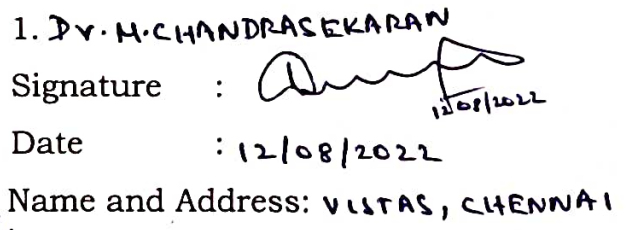 1. Dr. M. CHANDRASEKARAN
Signature :
12/08/2022
Date : 12/08/2022
Name and Address: VISTAS, CHENNAI